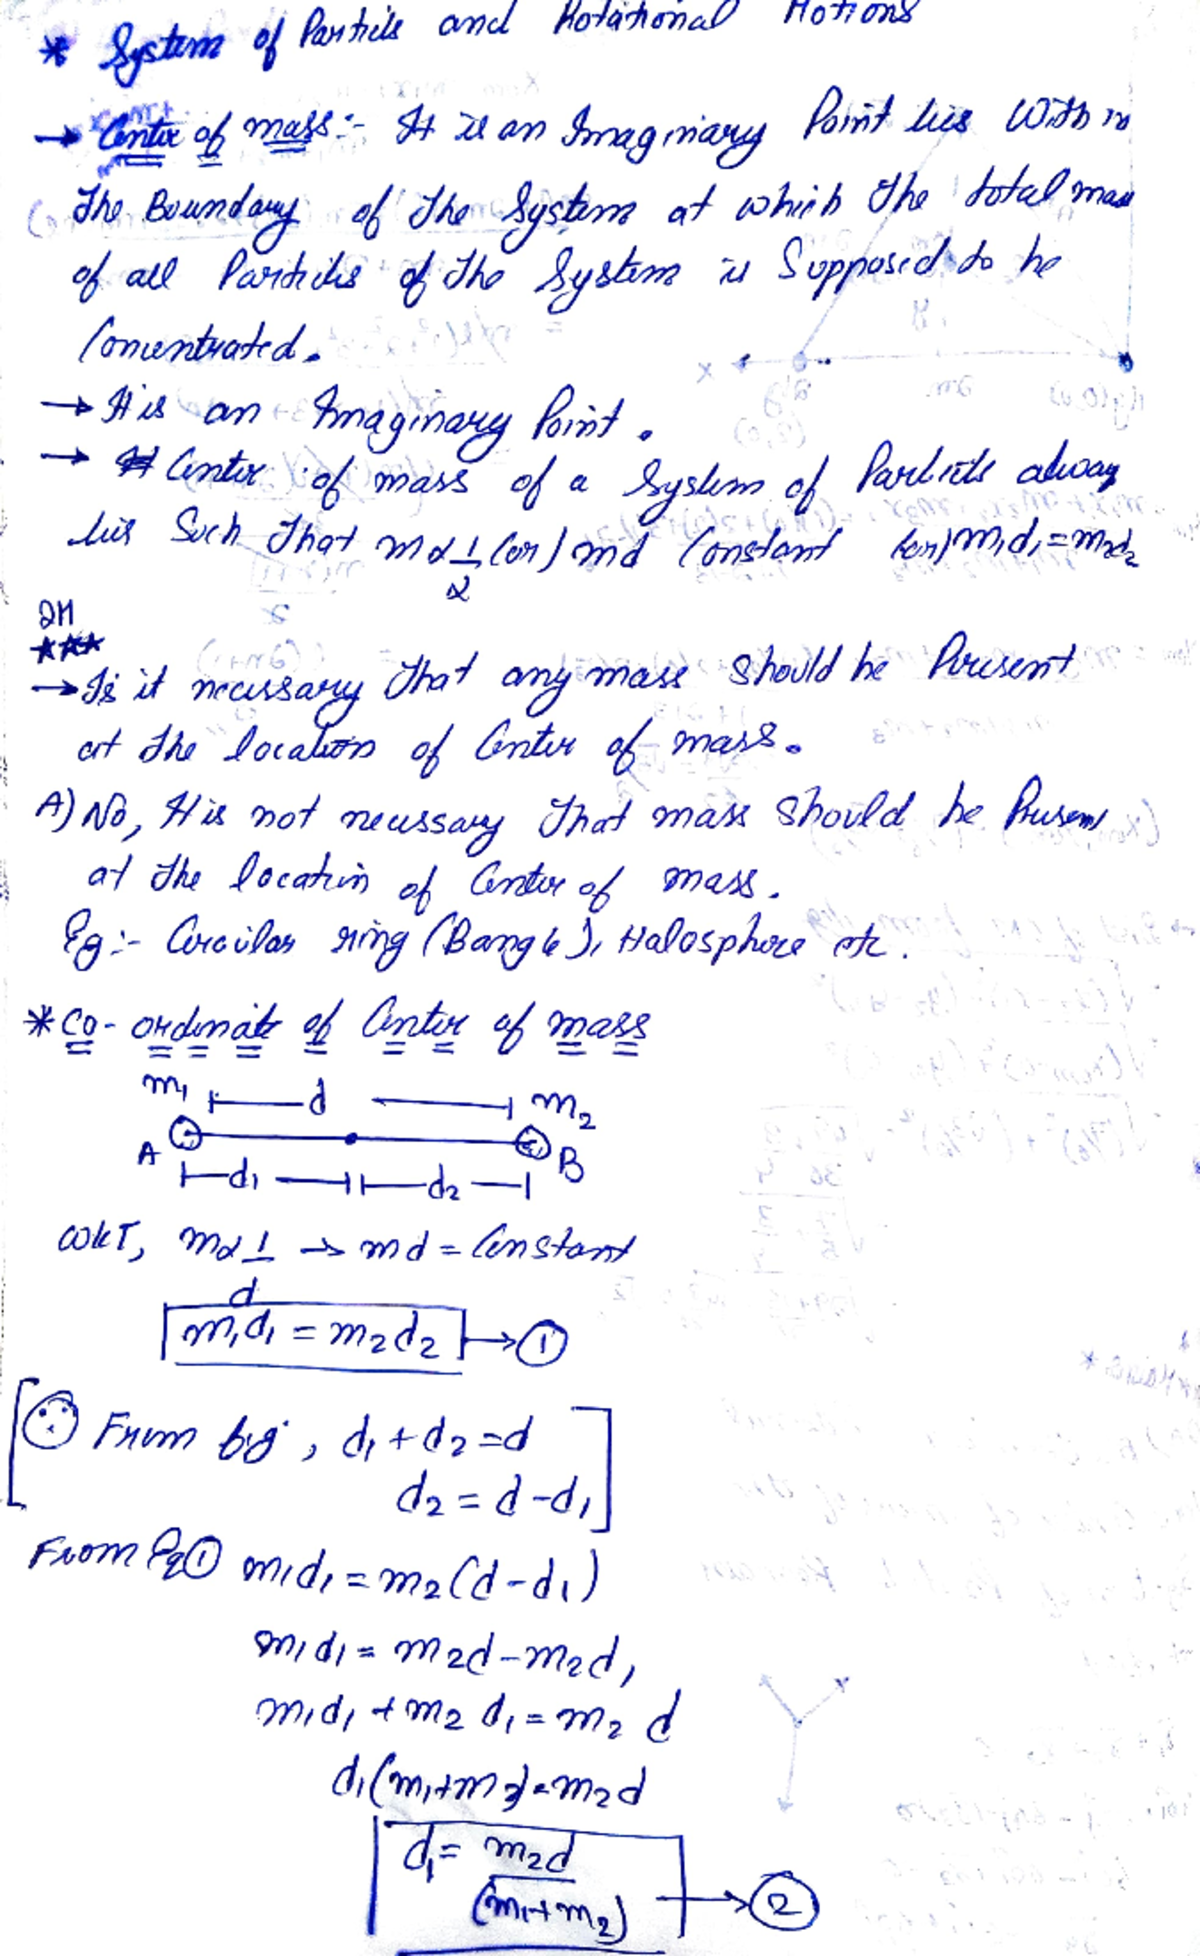 * System of Particle and Rotational Motions
→ Center of mass:- It is an Imaginary Point lies With in
the Boundary of the System at which the total mass
of all Particles of the System is Supposed to be
Concentrated.
→ It is an Imaginary Point.
→ Center of mass of a System of Particles alway
lies Such that m α 1/2 (or) md Constant (or) m₁d₁ = m₂d₂
2M
***
→ Is it necessary that any mass should be Present
at the location of Center of mass.
A) No, It is not necessary that mass should be Present
at the location of Center of mass.
Eg:- Circular ring (Bangle), Halosphere etc.
* Co-ordinate of Center of mass
m₁ d m₂
A B
d₁ d₂
WKT, m α 1/d → md = Constant
m₁d₁ = m₂d₂ → ①
From fig, d₁ + d₂ = d
d₂ = d - d₁
From Eq ① m₁d₁ = m₂(d - d₁)
m₁d₁ = m₂d - m₂d₁
m₁d₁ + m₂d₁ = m₂d
d₁(m₁+m₂) = m₂d
d₁ = m₂d/(m₁+m₂) → ②